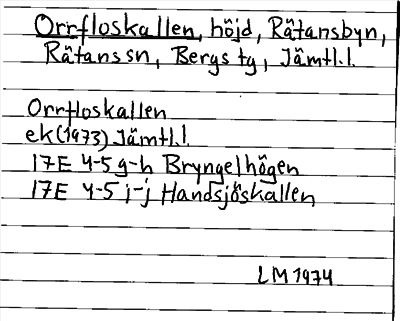 Orrfloskallen, höjd, Rätansbyn,
Rätans sn, Bergs tg, Jämtl.l.
Orrfloskallen
ek(1973) Jämtl.l.
17E 4-5 g-h Bryngelhögen
17E 4-5 i-j Handsjöskallen
LM 1974